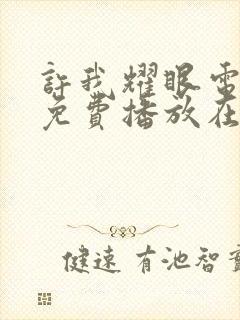 許我耀眼電
免費播放在
健速 有池智實